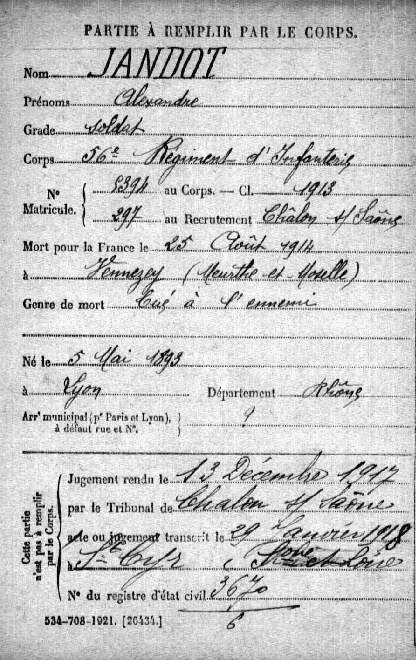 PARTIE À REMPLIR PAR LE CORPS.
Nom JANDOT
Prénoms Alexandre
Grade soldat
Corps 56e Régiment d'Infanterie
No Matricule. 5394 au Corps. — Cl. 1913
297 au Recrutement Châlon s/ Saône
Mort pour la France le 25 Août 1914
à Vennezey (Meurthe et Moselle)
Genre de mort Tué à l'ennemi
Né le 5 Mai 1893
à Lyon Département Rhône
Arrt municipal (pr Paris et Lyon),
à défaut rue et No.
Cette partie n'est pas à remplir par le Corps.
Jugement rendu le 13 Décembre 1917
par le Tribunal de Chalon s/ Saône
acte ou jugement transcrit le 29 Janvier 1918
à St Cyr et Loire
No du registre d'état civil 3670
6
534-708-1921. [26434.]